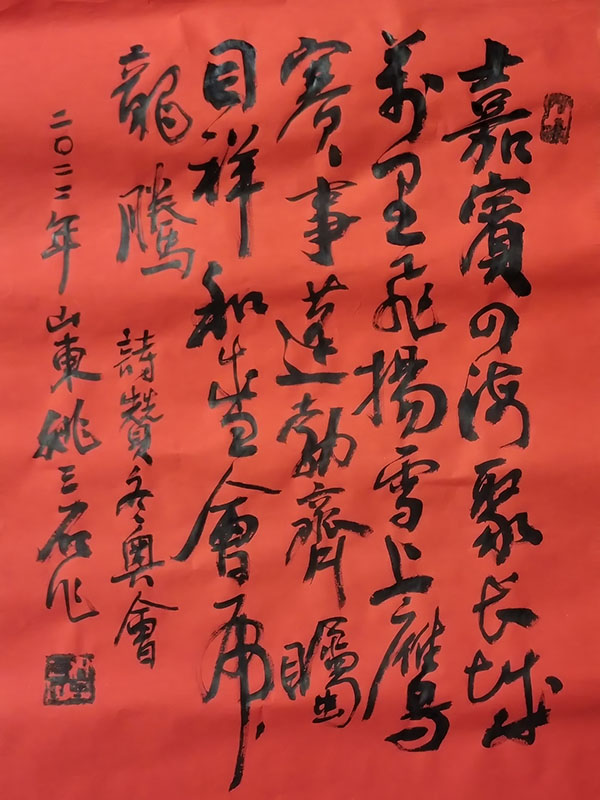 嘉賓四海聚長城
萬里飛揚雪上鷹
賽事蓬勃齊矚
目祥和盛會虎
龍騰
詩贊冬奧會
二〇二二年山東姚三石作